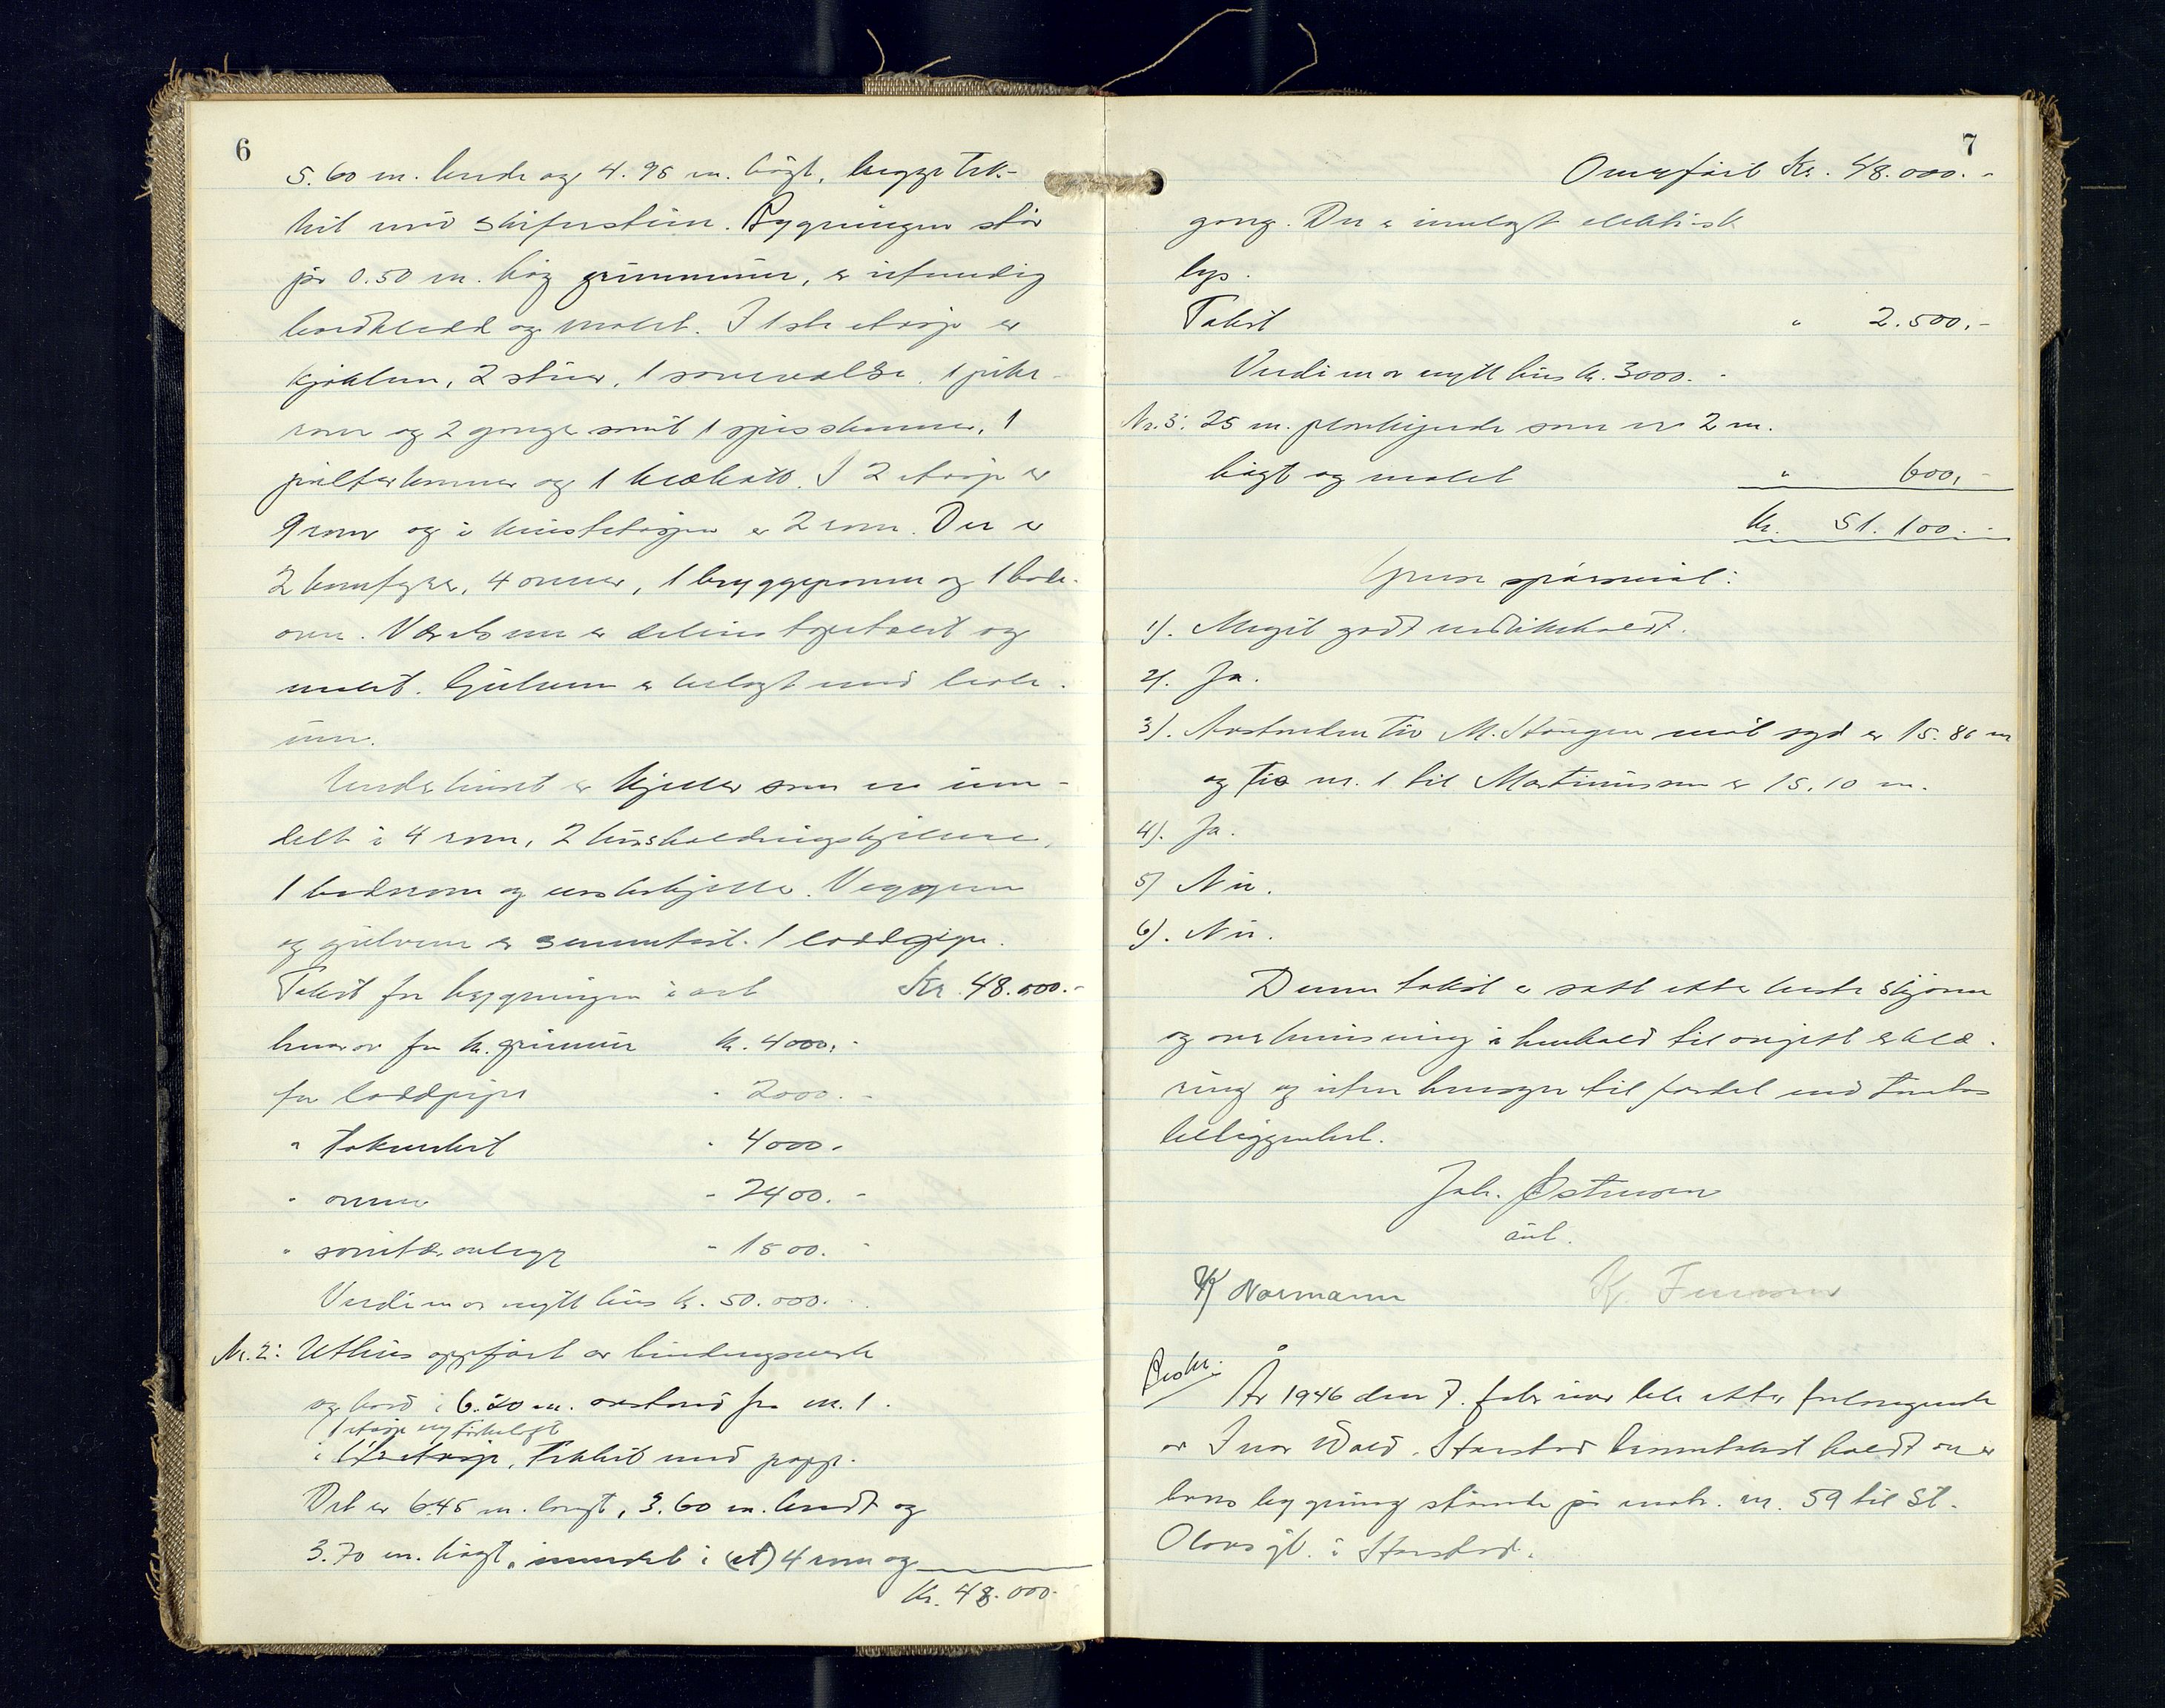 6
5.60 m. brede og 4.95 m. högt, begge tek-
ket med skiferstein. Bygningen står
på 0.50 m. høg grunnmur, er utvendig
bordkledd og malet. I 1ste etasje er
kjøkken, 2 stuer, 1 soveværelse, 1 pike-
rom og 2 ganger samt 1 spisskammer, 1
og 1 I 2 etasje er
9 rom og i kvistetasjen er 2 rom. Der er
2 komfyrer, 4 ovner, 1 bryggepanne og 1 bade-
ovn. Værelsene er delvis tapetsert og
malet. Gulvene er belagt med linole-
um.
Under huset er kjeller som er inn-
delt i 4 rom, 2 husholdningskjellere,
1 badrom og vaskekjeller. Veggene
og gulvene er sementert. 1 loddpipe.
Takst for bygningen i alt Kr. 48.000.-
hvorav for kr. grunnmur kr. 4000,-
for loddpipe " 2000.-
" takverket " 4000.-
" ovner " 2400.-
" sanitær anlegg " 1500.-
Verdi av nytt hus kr. 50.000.-
Nr. 2: Uthus oppført av bindingsverk
og bord i 6.20 m. avstand fra nr. 1.
i 1½ etasje, tekket med papp.
Det er 6.45 m. langt, 3.60 m. bredt og
3.70 m. högt, inndelt i (et) 4 rom og
Kr. 48.000.-
7
Overfört Kr. 48.000.-
gang. Der er innlagt elektrisk
lys.
Takst " 2.500,-
Verdi av nytt hus kr. 3000.-
Nr. 3: 25 m. plankegjerde som er 2 m.
högt og malet " 600,-
Kr. 51.100.-
spørsmål:
1). Meget godt vedlikeholdt.
2). Ja.
3). Avstanden til M. Hougen mot syd er 15.86 m
og fra nr. 1 til Martinussen er 15.10 m.
4). Ja.
5) Nei.
6). Nei.
Denne takst er satt etter beste skjønn
og overbevisning i henhold til avgitt erklæ-
ring og uten hensyn til fordel ved tomtens
beliggenhet.
Joh. Østmoen
aut.
K Normann K. Iversen
Beskr.
År 1946 den 7. februar ble etter forlangende
av Ivar Wold, Harstad branntakst holdt over
hans bygning stående på matr. nr. 59 til St.
Olavsgt. i Harstad.